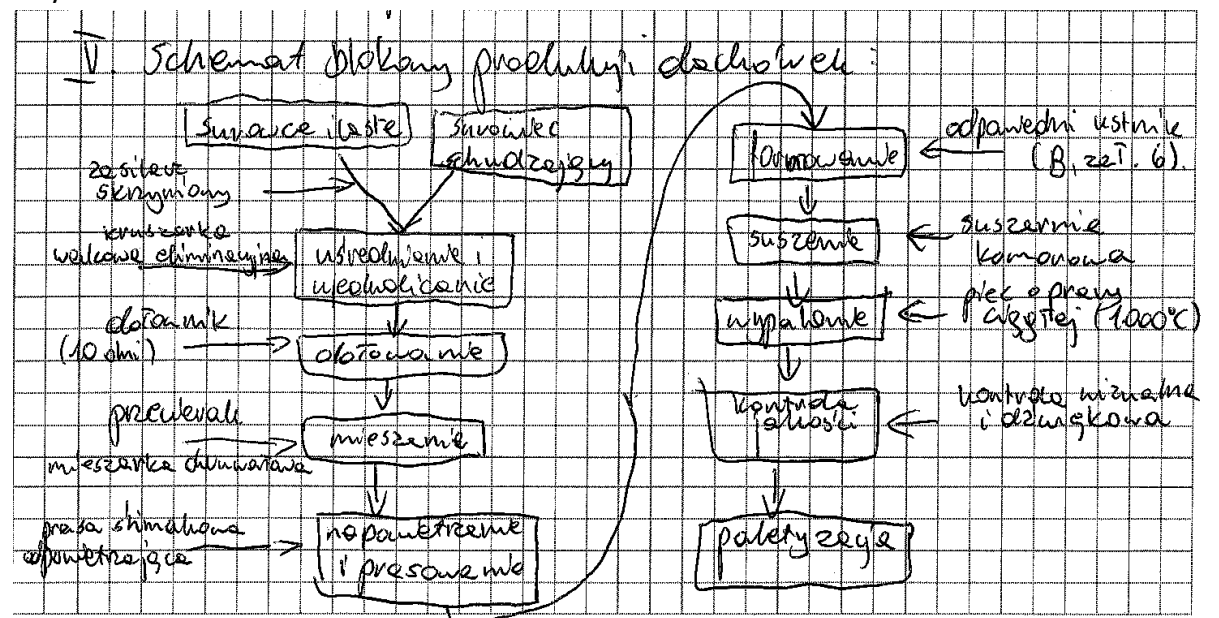 V. Schemat blokowy produkcji dachówek:
surowce ilaste
surowiec
schudzający
zasilacz
skrzyniowy
kruszarka
walcowa eliminacyjna
uśrednienie i
ujednolicanie
dołownik
(10 dni)
dołowanie
przecierak
mieszarka dwuwałowa
mieszenie
prasa ślimakowa
odpowietrzająca
napowietrzenie
i prasowanie
formowanie
odpowiedni ustnik
(B, zał. 6).
suszenie
suszarnia
komorowa
wypalanie
piec o pracy
ciągłej (1000°C)
kontrola
jakości
kontrola wizualna
i dźwiękowa
paletyzacja